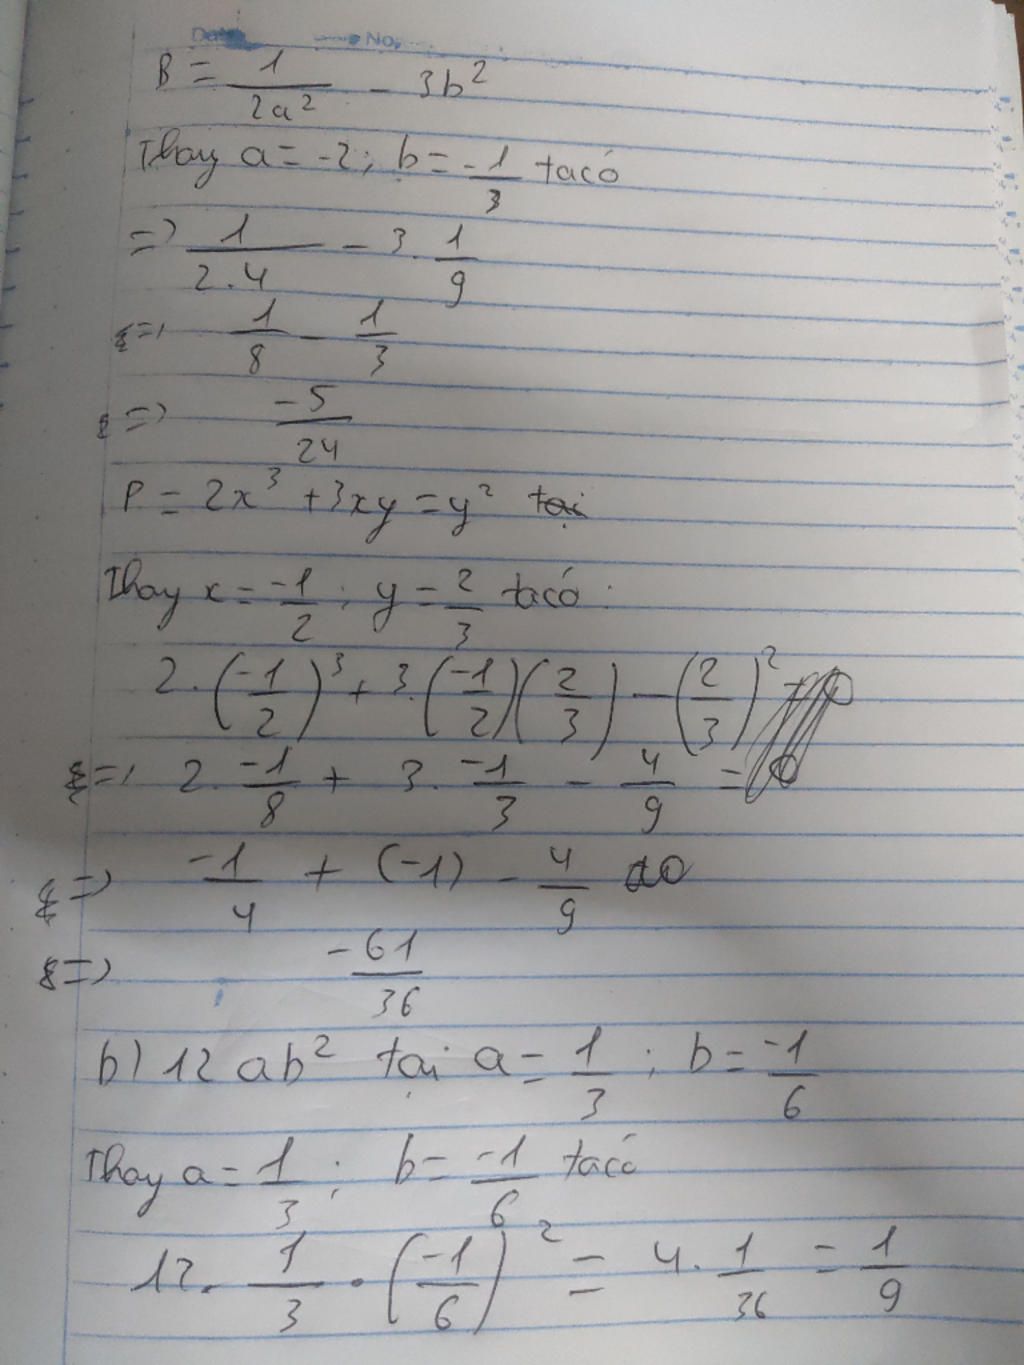 Date No.
B = 1/2a² - 3b²
Thay a = -2; b = -1/3 ta có
=> 1/2.4 - 3.1/9
=> 1/8 - 1/3
=> -5/24
P = 2x³ + 3xy = y² tại
Thay x = -1/2; y = 2/3 ta có:
2.(-1/2)³ + 3.(-1/2)(2/3) - (2/3)²
=> 2.-1/8 + 3.-1/3 - 4/9 =
=> -1/4 + (-1) - 4/9
=> -61/36
b) 12ab² tại a = 1/3; b = -1/6
Thay a = 1/3; b = -1/6 ta có
12.1/3.(-1/6)² = 4.1/36 = 1/9